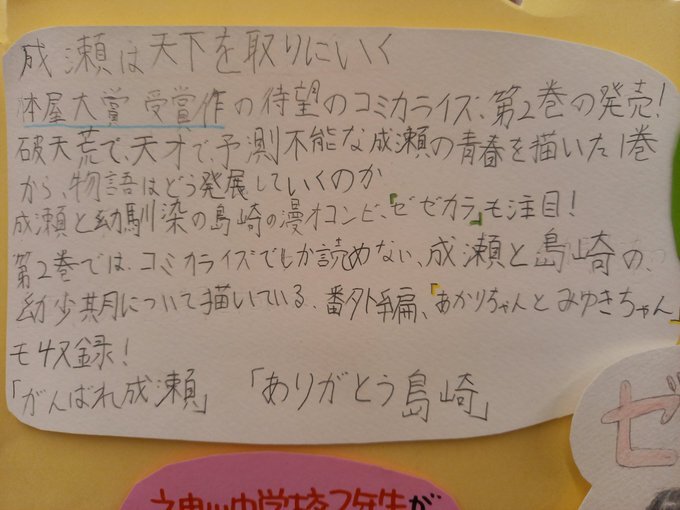 成瀬は天下を取りにいく
本屋大賞 受賞作の待望のコミカライズ、第2巻の発売!
破天荒で、天才で、予測不能な成瀬の青春を描いた1巻
から、物語はどう発展していくのか
成瀬と幼馴染の島崎の漫才コンビ、「ゼゼカラ」も注目!
第2巻では、コミカライズでしか読めない、成瀬と島崎の、
幼少期について描いている、番外編、「あかりちゃんとみゆきちゃん」
も収録!
「がんばれ成瀬」 「ありがとう島崎」
ゼ
中学校2年生が